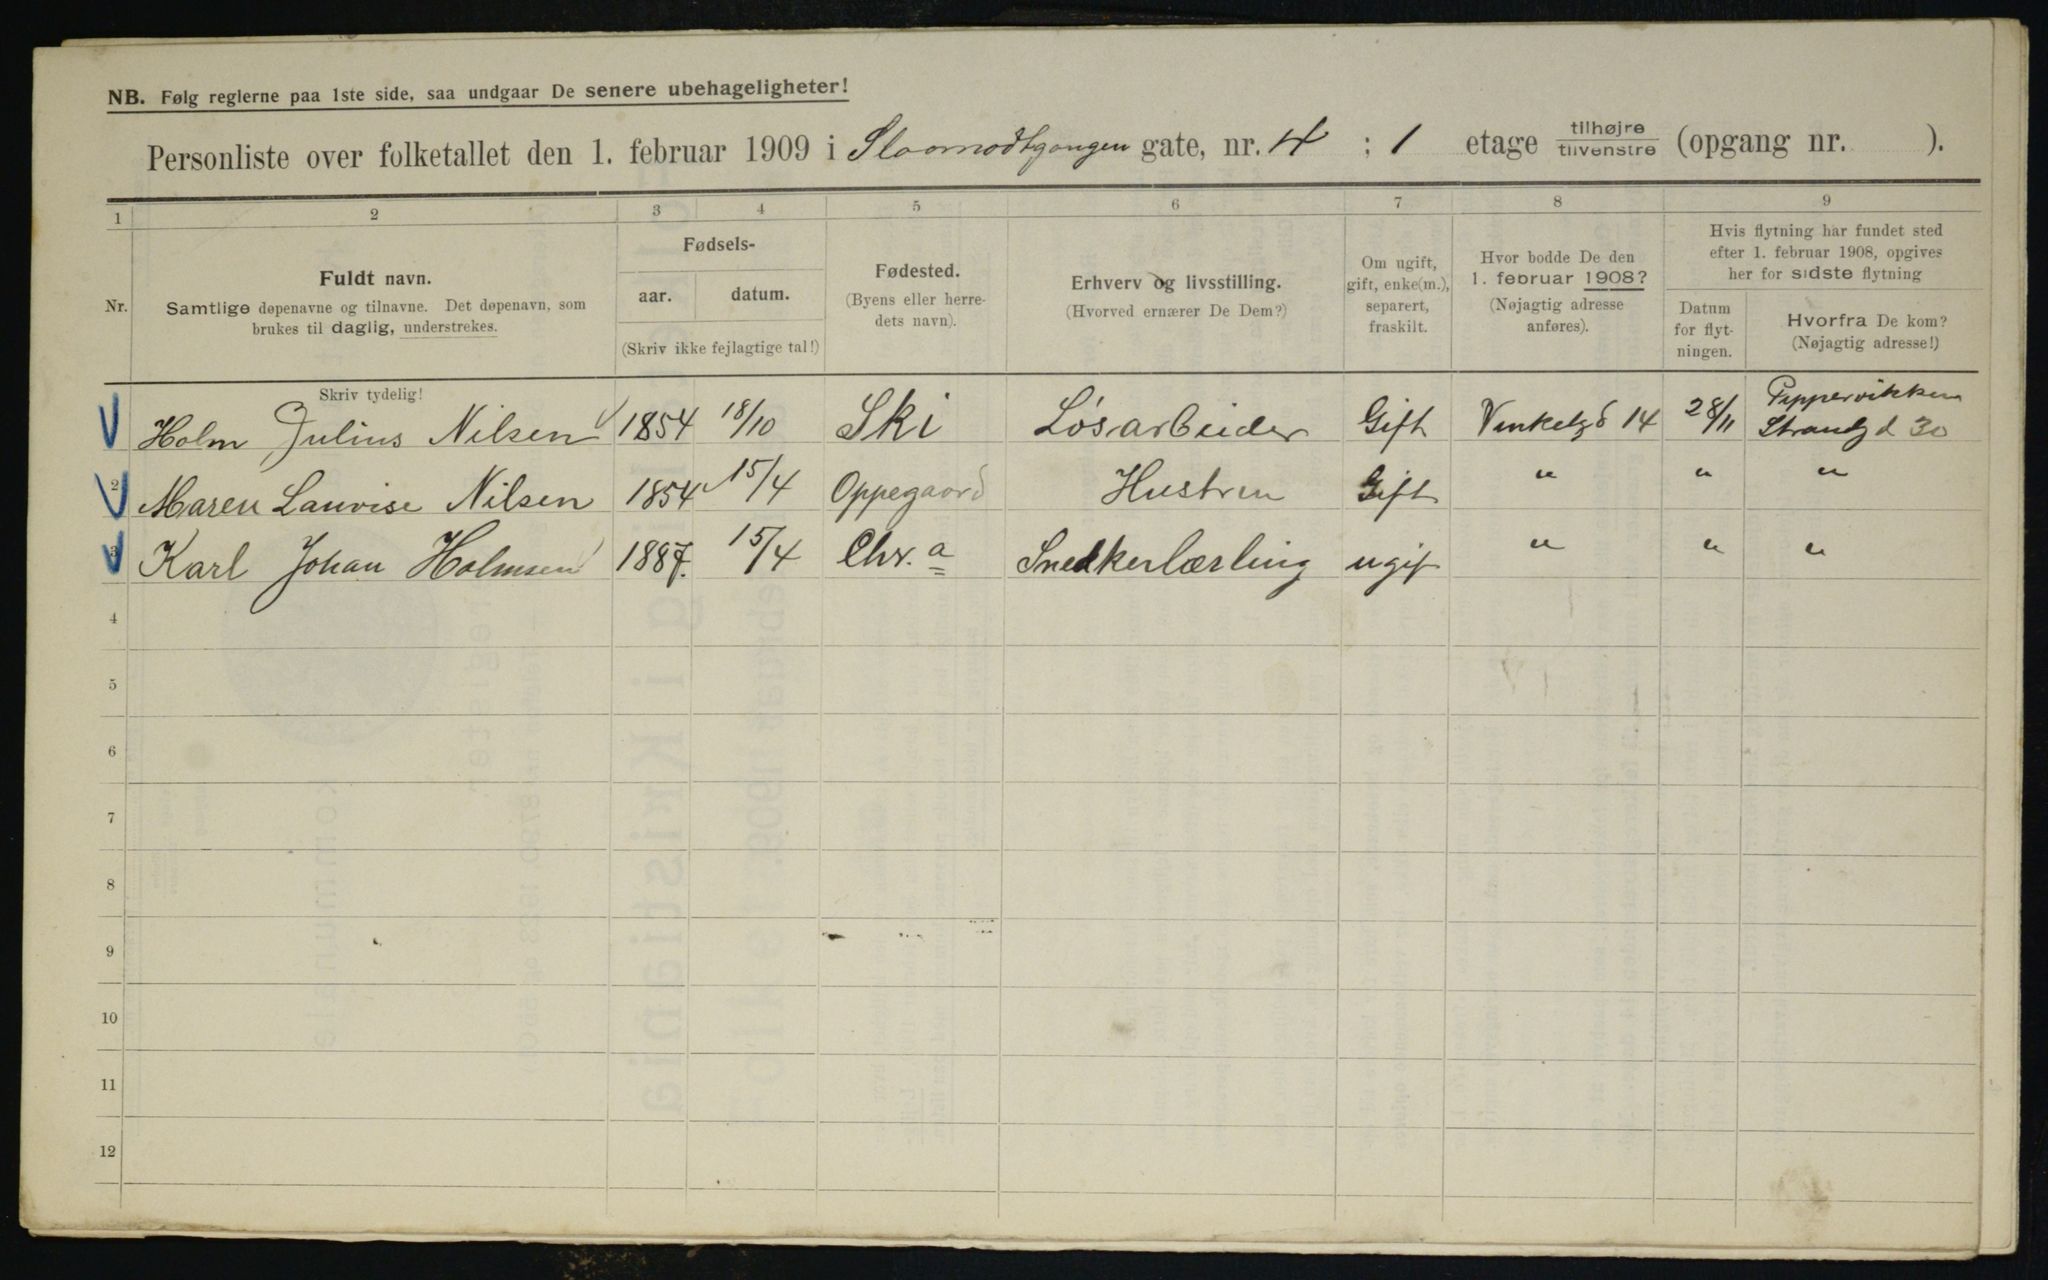 NB. Følg reglerne paa 1ste side, saa undgaar De senere ubehageligheter!
Personliste over folketallet den 1. februar 1909 i Slaamodtgangen gate, nr. 4 ; 1 etage tilhøjre tilvenstre (opgang nr. ).
1 2 3 4 5 6 7 8 9
Nr.
Fuldt navn.
Samtlige døpenavne og tilnavne. Det døpenavn, som
brukes til daglig, understrekes.
Fødsels-
aar. datum.
(Skriv ikke fejlagtige tal!)
Fødested.
(Byens eller herre-
dets navn).
Erhverv og livsstilling.
(Hvorved ernærer De Dem?)
Om ugift,
gift, enke(m.),
separert,
fraskilt.
Hvor bodde De den
1. februar 1908?
(Nøjagtig adresse
anføres).
Hvis flytning har fundet sted
efter 1. februar 1908, opgives
her for sidste flytning
Datum
for flyt-
ningen.
Hvorfra De kom?
(Nøjagtig adresse!)
Skriv tydelig!
Holm Julius Nilsen 1854 18/10 Ski Løsarbeider Gift Vinkelgd 14 28/11 Pippervikken
Strandgd 30
2 Maren Lauvise Nilsen 1854 15/4 Oppegaard Hustru Gift " " "
3 Karl Johan Holmsen 1887. 15/4 Chr.a Snedkerlærling ugif " " "
4
5
6
7
8
9
10
11
12